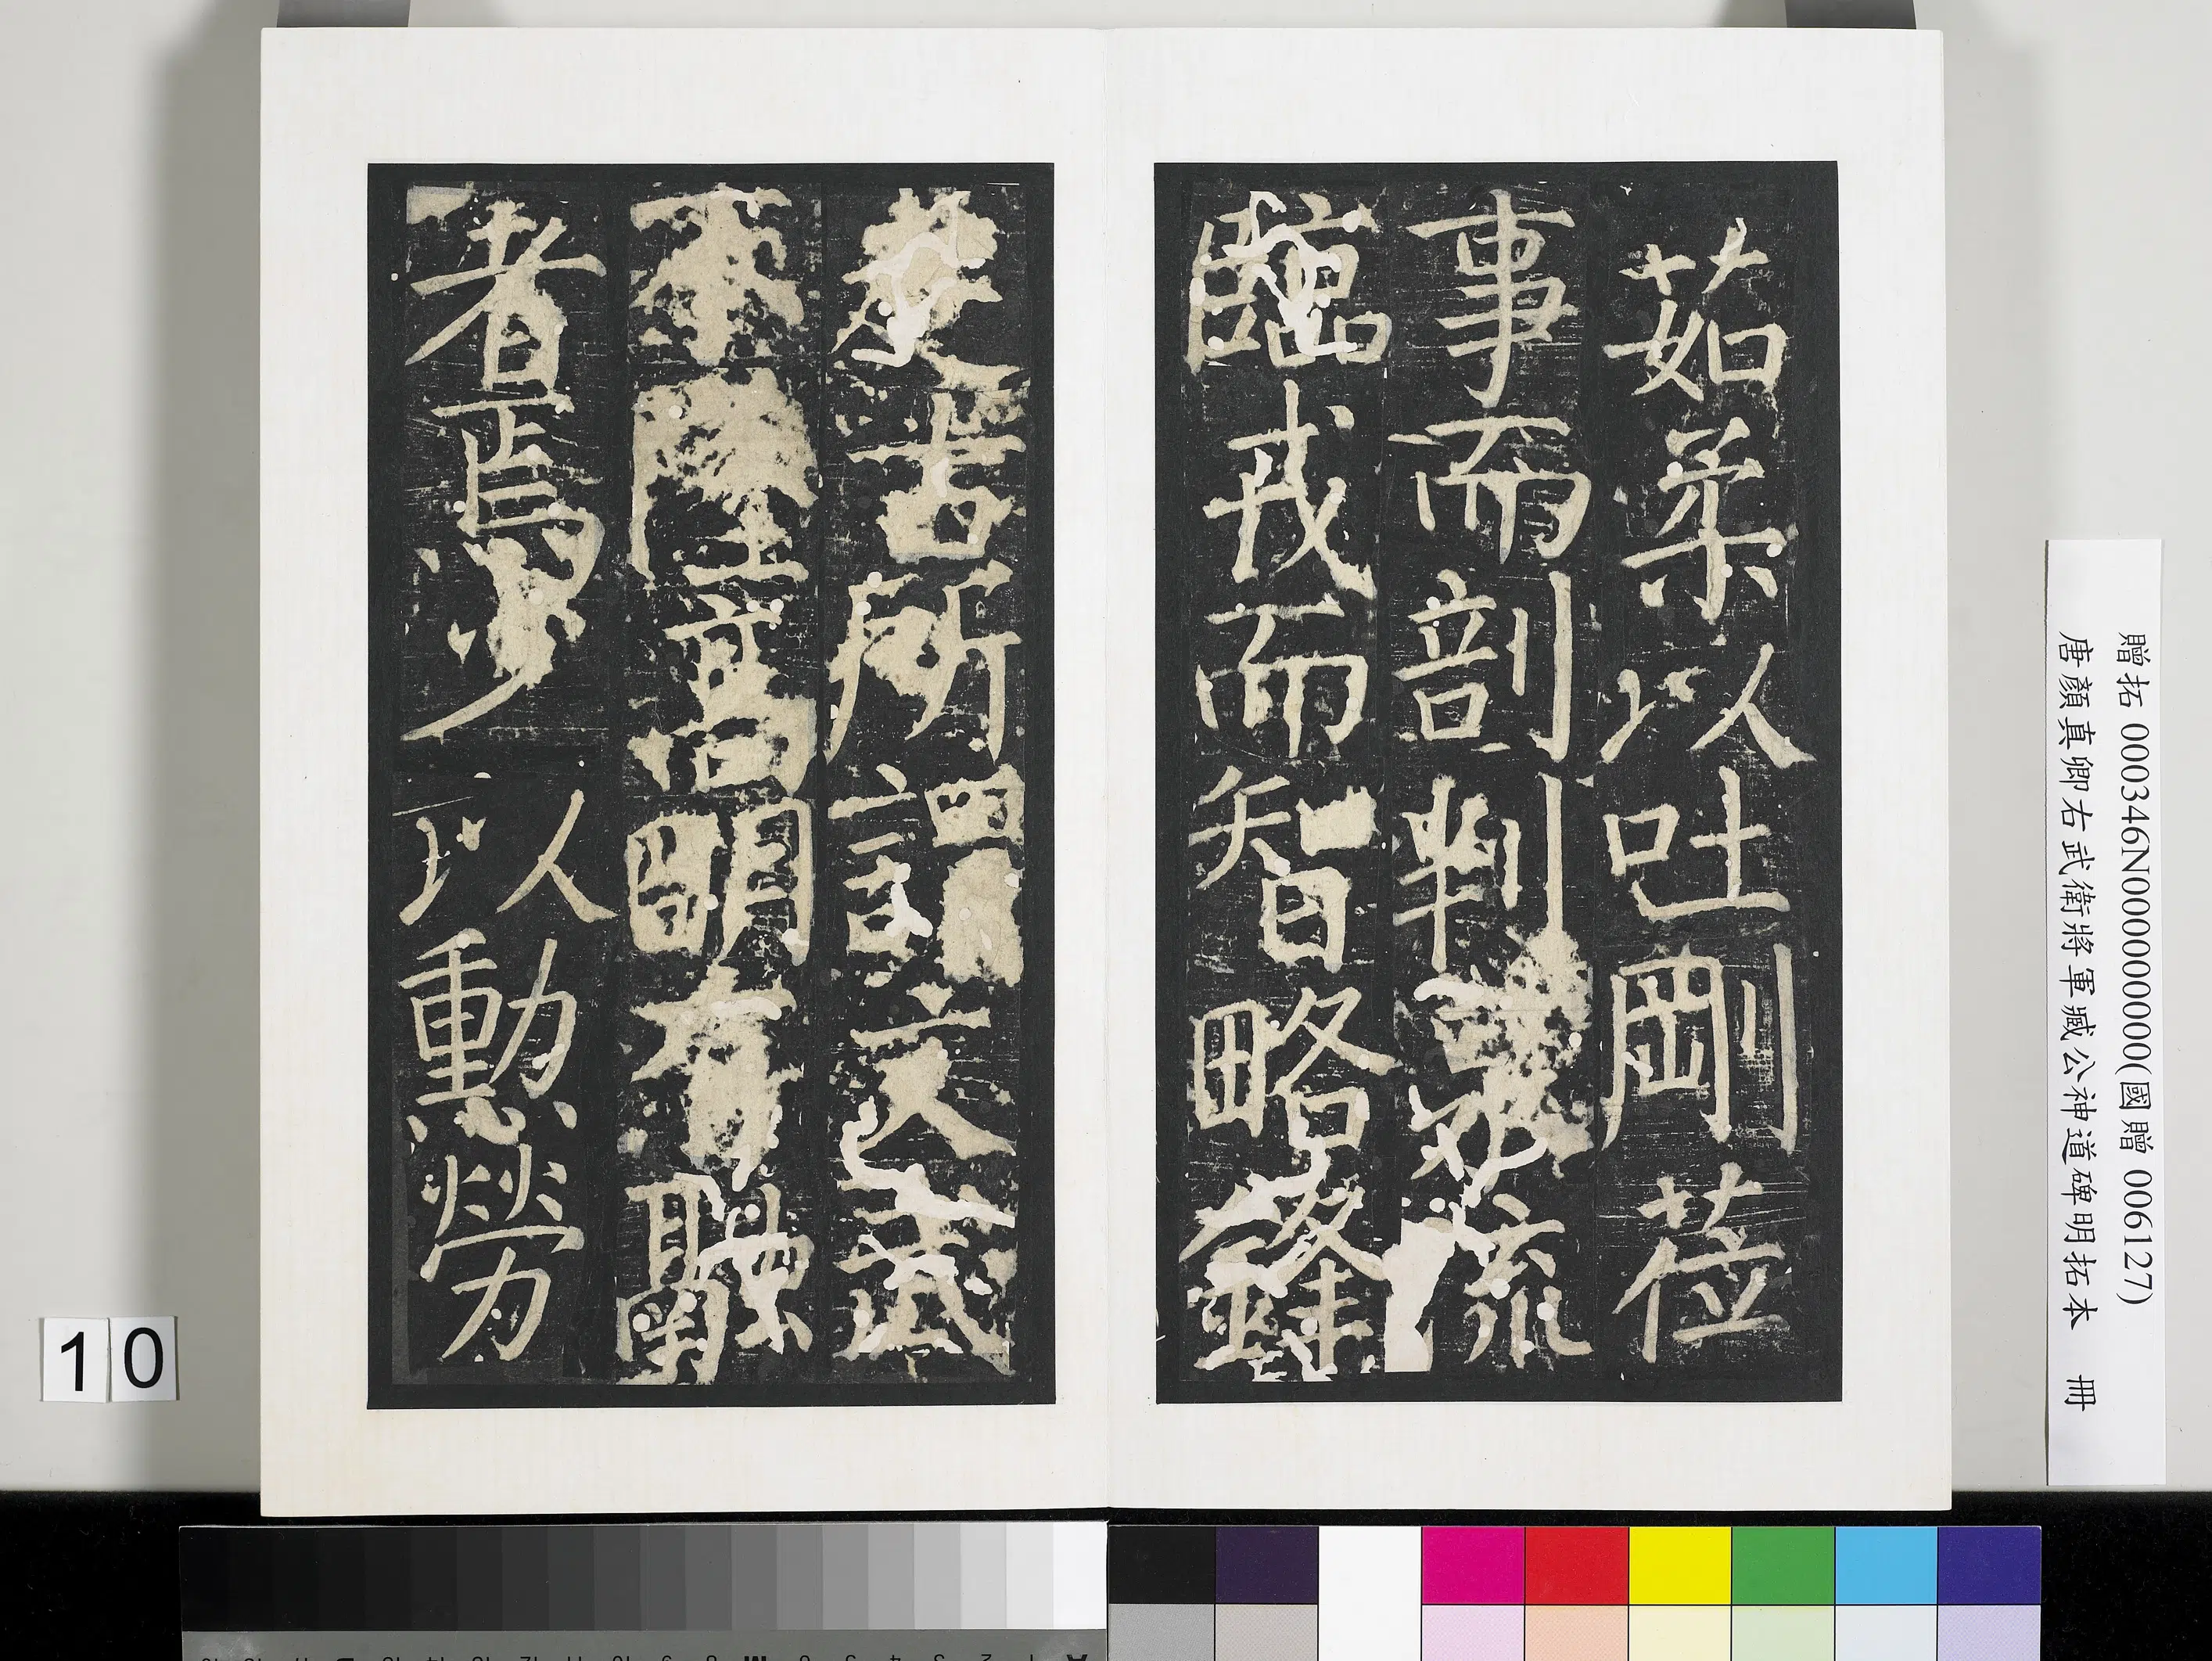 茹柔以吐剛莅
事而剖判泉流
臨戎而智略鋒
楚古所謂文武
不墜高明有融
者焉少以勳勞
贈拓 000346N000000000(國贈 006127)
唐顏真卿右武衛將軍臧公神道碑明拓本 冊
10